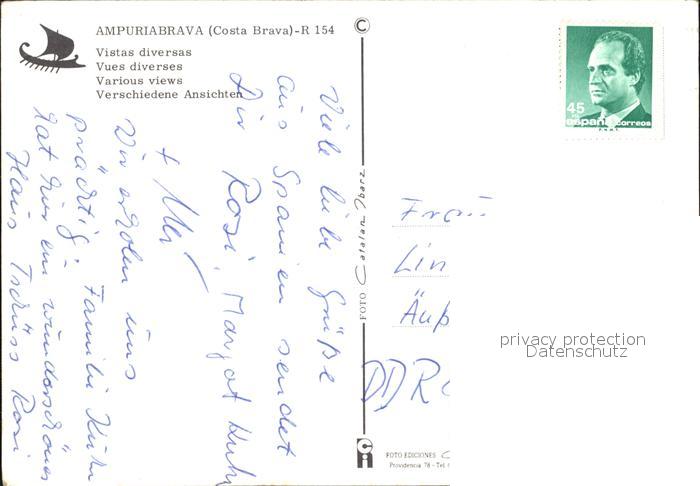 AMPURIABRAVA (Costa Brava)-R 154
Vistas diversas
Vues diverses
Various views
Verschiedene Ansichten
Viele liebe Grüße
aus Spanien sendet
Dir Rosi, Margot Kuhn
+ Uli
Wir erholen uns
prächtig. Familie Kuhn
hat hier ein wunderschönes
Haus Tschüss Rosi
©
FOTO Catalan Ibarz
FOTO EDICIONES C
Providencia 78 - Tel
45
españa correos
Frau
Lin
Äuß
DDR
privacy protection
Datenschutz